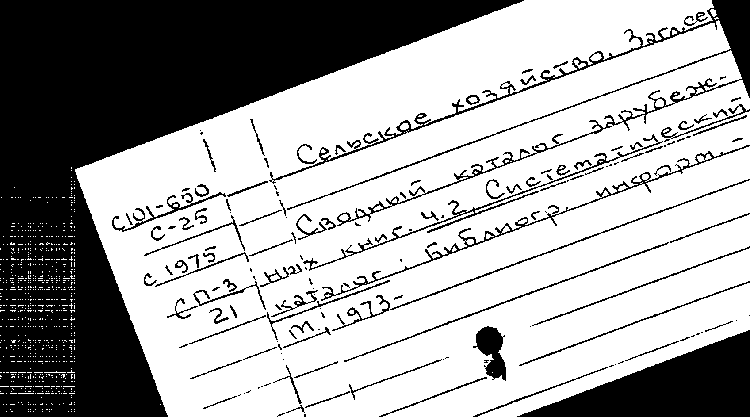 Сельское хозяйство. Загл. сер
С101-650
С-25
С 1975
СП-3
21
Сводный каталог зарубеж-
ных книг. Ч.2, Систематический
каталог : Библиогр. информ. -
М., 1973-